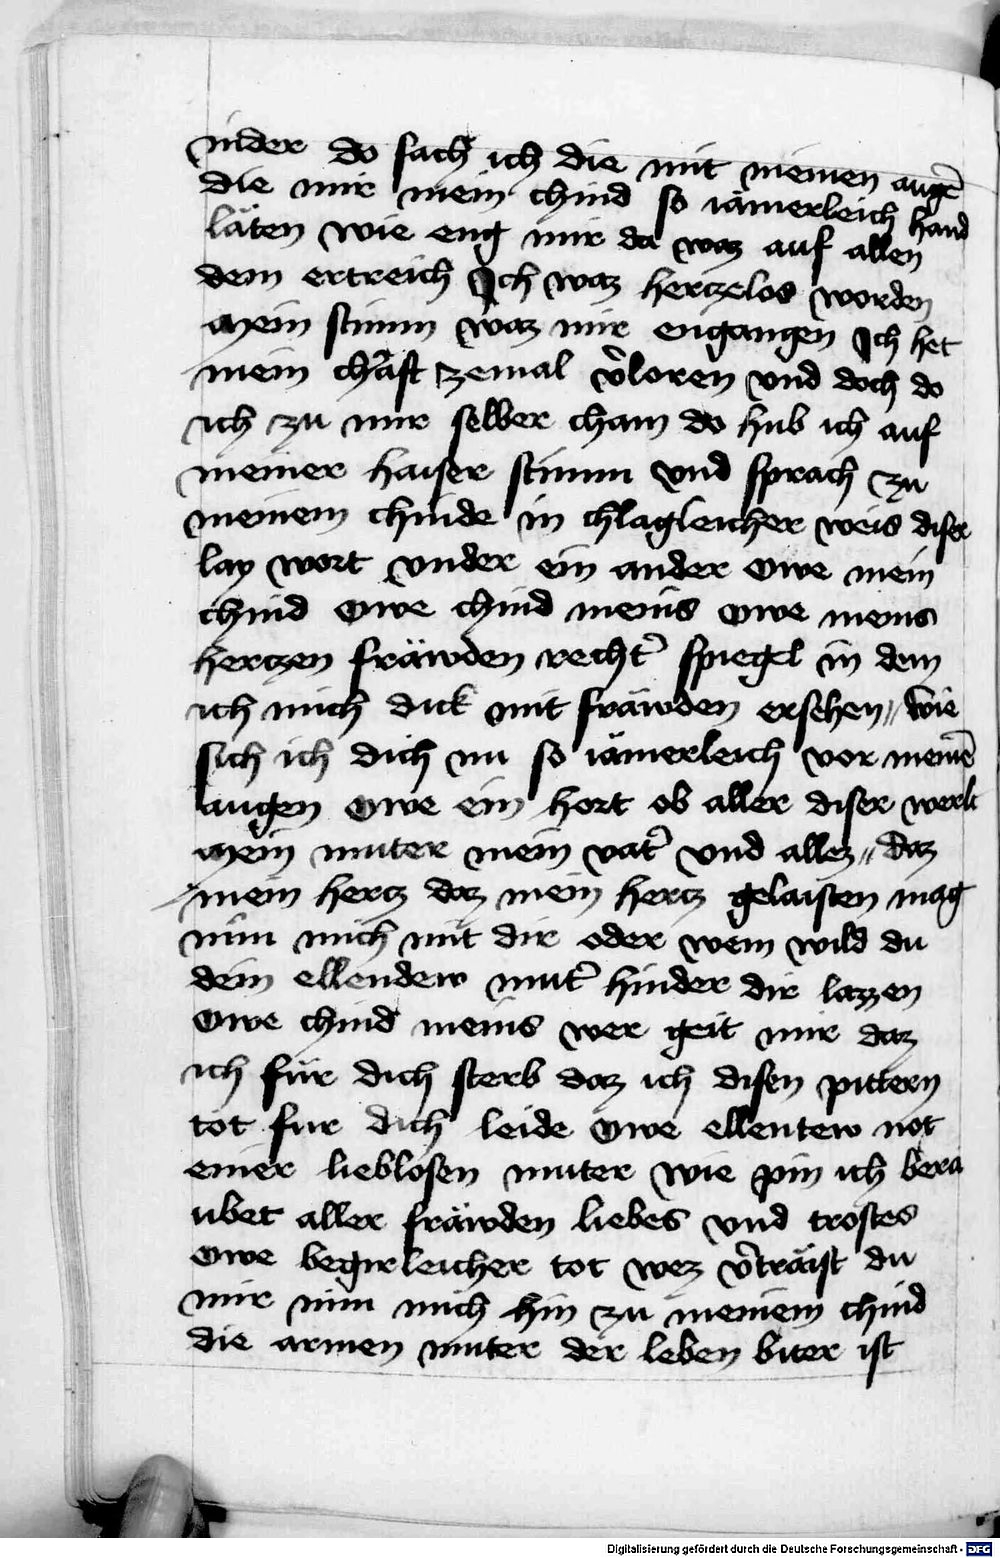 nider do sach ich die mit meinen augē
die mir mein chind so iämerleich hand
läten wie eng mir da waz auf allen
dem ertreich Ich waz herczelos worden
mein stimm waz mir engangen Ich het
mein chraft zemal v̄loren vnd doch do
ich zu mir selber cham do hub ich auf
meiner haiser stimm vnd sprach zu
meinem chinde in chlagleicher weis diser
lay wort vnder ein ander Owe mein
chind Owe chind meins Owe meins
herczen fräwden recht̄ spiegel in dem
ich mich dick mit fräwden ersehen〃 wie
sich ich dich nu so iämerleich vor meinē
augen Owe ein hort ob aller diser werlt
mein muter mein vat̄ vnd allez〃 daz
mein hercz daz mein hercz gelaisten mag
nim mich mit dir oder wem wild du
dein ellendew mut̄ hinder dir lazzen
Owe chind meins wer geit mir daz
ich für dich sterb daz ich disen pittern
tot fur dich leide Owe ellentew not
einer lieblosen muter wie pin ich bera
ubet aller fräwden liebes vnd trostes
Owe begirleicher tot wez v̄träist du
mir nim mich hin zu meinem chind
die armen muter der leben biter ist
Digitalisierung gefördert durch die Deutsche Forschungsgemeinschaft - DFG